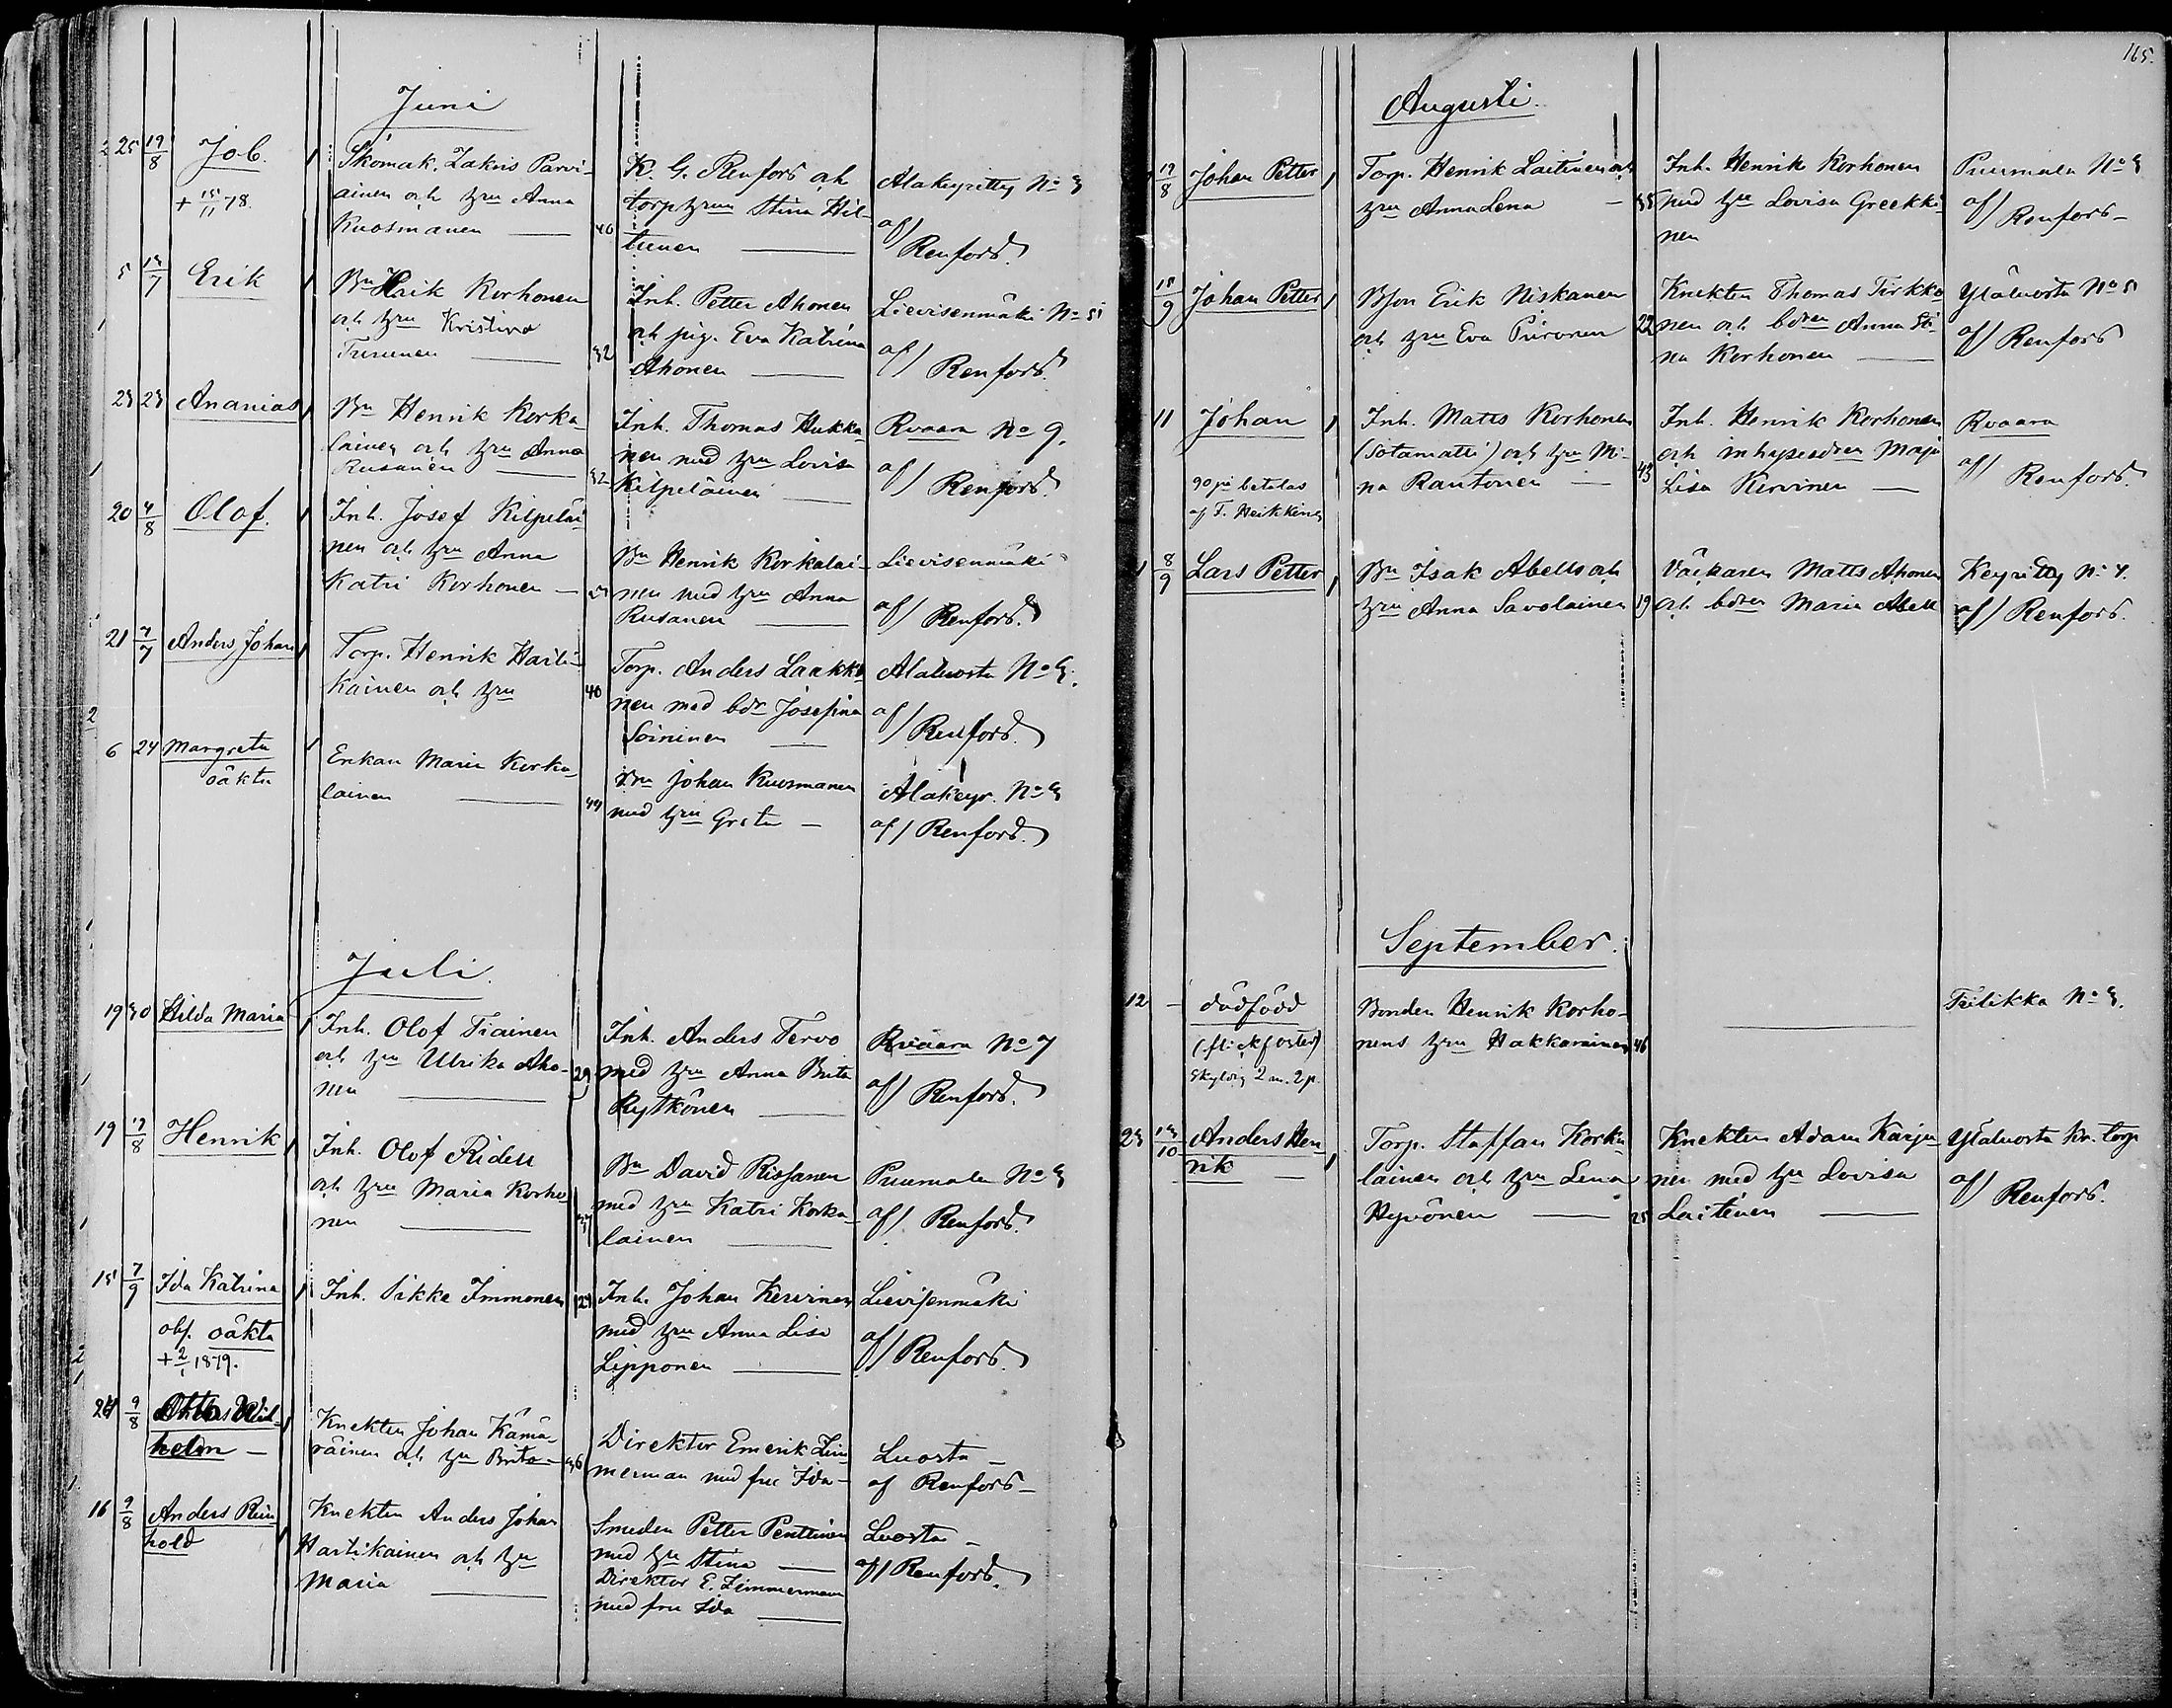 165.
Juni
25 19/8 Job. Skomak. Zakris Parvi-
ainen och hru Anna
Kuosmanen — 40
+ 15/11 78.
K. G. Renfors och
torp hrun Stina Hil-
tunen —
Alakeyritty No 3
af/ Renfors.
5 /7 Erik Bn Hrik Korhonen
och hru Kristina
— 32
Inh. Petter Ahonen
och pig. Eva Katrina
Ahonen —
Lievisenmäki No 5
af/ Renfors.
23 23 Ananias Bn Henrik Korka-
lainen och hru Anna
Rusanen — 32
Inh. Thomas Hukka-
nen med hru Lovisa
Kilpeläinen —
Rvaara No 9.
af/ Renfors.
20 4/8 Olof. Inh. Josef Kilpeläi-
nen och hru Anna
Katri Korhonen —
Bn Henrik Korkalai-
nen med hru Anna
Rusanen —
Lievisenmäki
af/ Renfors.
21 7/7 Anders Johan Torp. Henrik Harti-
kainen och hru 40
Torp. Anders Laakko-
nen med bdr Josefina
Soininen —
Alaluosta No 3.
af/ Renfors.
6 24 Margreta
oäkta
Enkan Maria Korka-
lainen — 44
Bn Johan Kuosmanen
med hru Greta —
Alakeyr. No 3
af/ Renfors.
Juli.
19 30 Hilda Maria Inh. Olof Tiainen
och hru Ulrika Aho-
nen — 29
Inh. Anders Tervo
med hru Anna Brita
Rytkönen —
Rvaara No 7
af/ Renfors.
19 17/8 Henrik Inh. Olof Ridell
och hru Maria Korho-
nen — 37
Bn David Rissanen
med hru Katri Korka-
lainen —
Puumala No 3
af/ Renfors.
15 7/9 Ida Katrina Inh. Pikka Immonen 24
obs. oäkta
+ 2/1 1879.
Inh. Johan Kervinen
med hru Anna Lisa
Lipponen —
Lievisenmäki
af/ Renfors.
24 9/8 Wil-
helm —
Knekten Johan Kämä-
räinen och hru Brita — 36
Direktor Emerik Zim-
merman med fru Ida —
Luosta —
af Renfors —
16 9/8 Anders Rein-
hold
Knekten Anders Johan
Hartikainen och hru
Maria —
Smeden Petter Penttinen
med hru Stina —
Direktor E. Zimmermann
med fru Ida —
Luosta —
af/ Renfors.
Augusti.
19/8 Johan Petter Torp. Henrik Laitinen och
hru Anna Lena — 35
Inh. Henrik Korhonen
med hru Lovisa Greekki-
nen
Puumala No 3
af/ Renfors —
15/9 Johan Petter Bson Erik Niskanen
och hru Eva Piironen 22
Knekten Thomas Tirkko-
nen och bdren Anna Sti-
na Korhonen —
Ylaluosta No 5
af/ Renfors
11 Johan Inh. Matts Korhonen
(Sotamatti) och hru Mi-
na Rautonen — 43
90 pi betalas
af T. Heikkinen
Inh. Henrik Korhonen
och inhysesdren Maja
Lisa Kervinen —
Rvaara
af/ Renfors.
8/9 Lars Petter Bn Isak Abell och
hru Anna Savolainen 19
Väfvaren Matts Ahonen
och bdren Maria Abell
Keyritty No 4.
af/ Renfors.
September.
12 — dödfödd
(flickfoster)
Skyldig 2 m. 2 p.
Bonden Henrik Korho-
nens hru Hakkarainen 46
—
Tiilikka No 3.
23 13/10 Anders Hen-
rik —
Torp. Staffan Korka-
lainen och hru Lena
Hyvönen — 25
Knekten Adam Karja-
nen med hru Lovisa
Laitinen —
Ylaluosta Kr. torp
af/ Renfors.